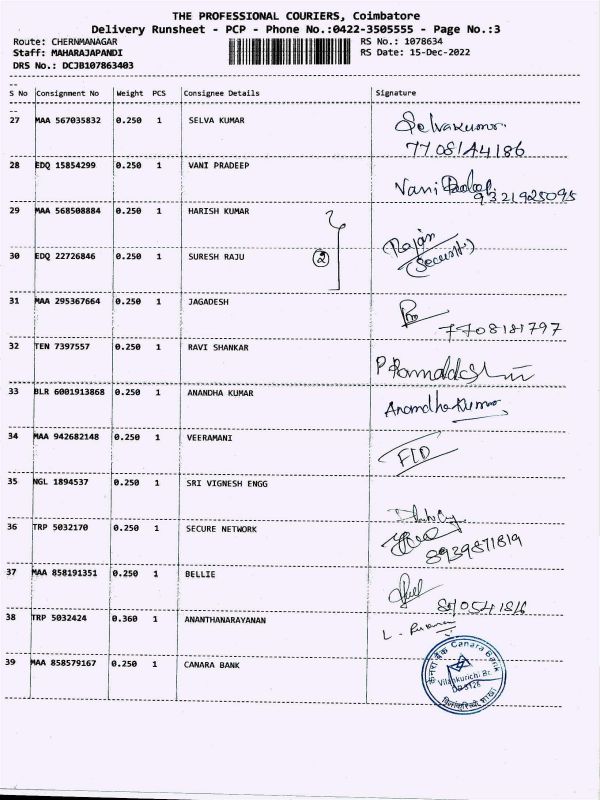 THE PROFESSIONAL COURIERS, Coimbatore
Delivery Runsheet - PCP - Phone No.:0422-3505555 - Page No.:3
Route: CHERNMANAGAR RS No.: 1078634
Staff: MAHARAJAPANDI RS Date: 15-Dec-2022
DRS No.: DCJB107863403
S No Consignment No Weight PCS Consignee Details Signature
27 MAA 567035832 0.250 1 SELVA KUMAR Selvakumar
28 EDQ 15854299 0.250 1 VANI PRADEEP Vani
9321925095
29 MAA 568508884 0.250 1 HARISH KUMAR
Rajan
(Security)
30 EDQ 22726846 0.250 1 SURESH RAJU 2
31 MAA 295367664 0.250 1 JAGADESH
7708181797
32 TEN 7397557 0.250 1 RAVI SHANKAR
33 BLR 6001913868 0.250 1 ANANDHA KUMAR Anandha Kumar
34 MAA 942682148 0.250 1 VEERAMANI
35 NGL 1894537 0.250 1 SRI VIGNESH ENGG
36 TRP 5032170 0.250 1 SECURE NETWORK
8939871819
37 MAA 858191351 0.250 1 BELLIE
38 TRP 5032424 0.360 1 ANANTHANARAYANAN
39 MAA 858579167 0.250 1 CANARA BANK
केनरा बैंक Canara Bank
Vilankurichi Br.